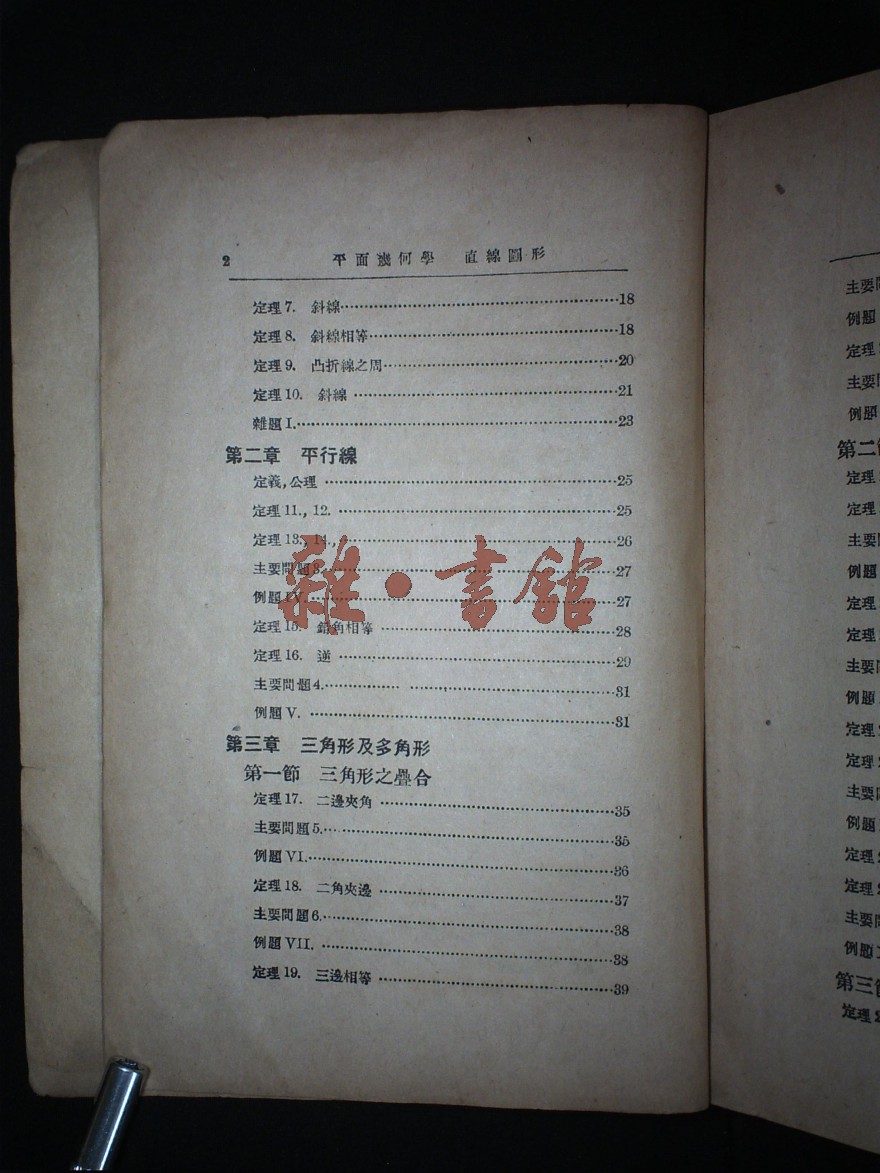 2 平面幾何學 直線圖形
定理7. 斜線……18
定理8. 斜線相等……18
定理9. 凸折線之周……20
定理10. 斜線……21
雜題I.……23
第二章 平行線
定義,公理……25
定理11., 12.……25
定理13., 14.,……26
主要問題3.……27
例題IV.……27
定理15. 錯角相等……28
定理16. 逆……29
主要問題4.……31
例題V.……31
第三章 三角形及多角形
第一節 三角形之疊合
定理17. 二邊夾角……35
主要問題5.……35
例題VI.……36
定理18. 二角夾邊……37
主要問題6.……38
例題VII.……38
定理19. 三邊相等……39
雜·書館
主要
例題
定理
主要
例題
第二
定理
定理
主要
例題
定理
定理
主要
例題
定理
定理
主要
例題
定理
定理
主要
例題
第三
定理